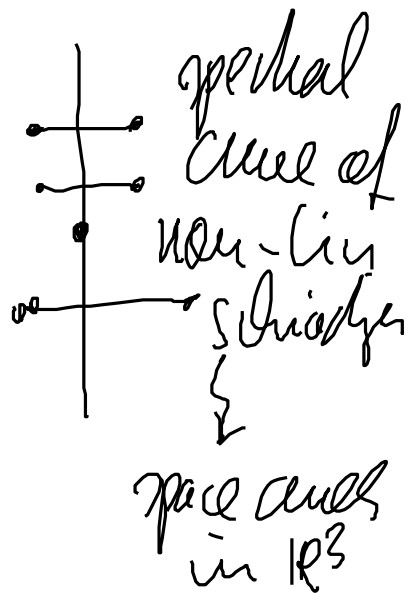 spectral
curve of
non-lin
Schrödger
space curves
in ℝ³